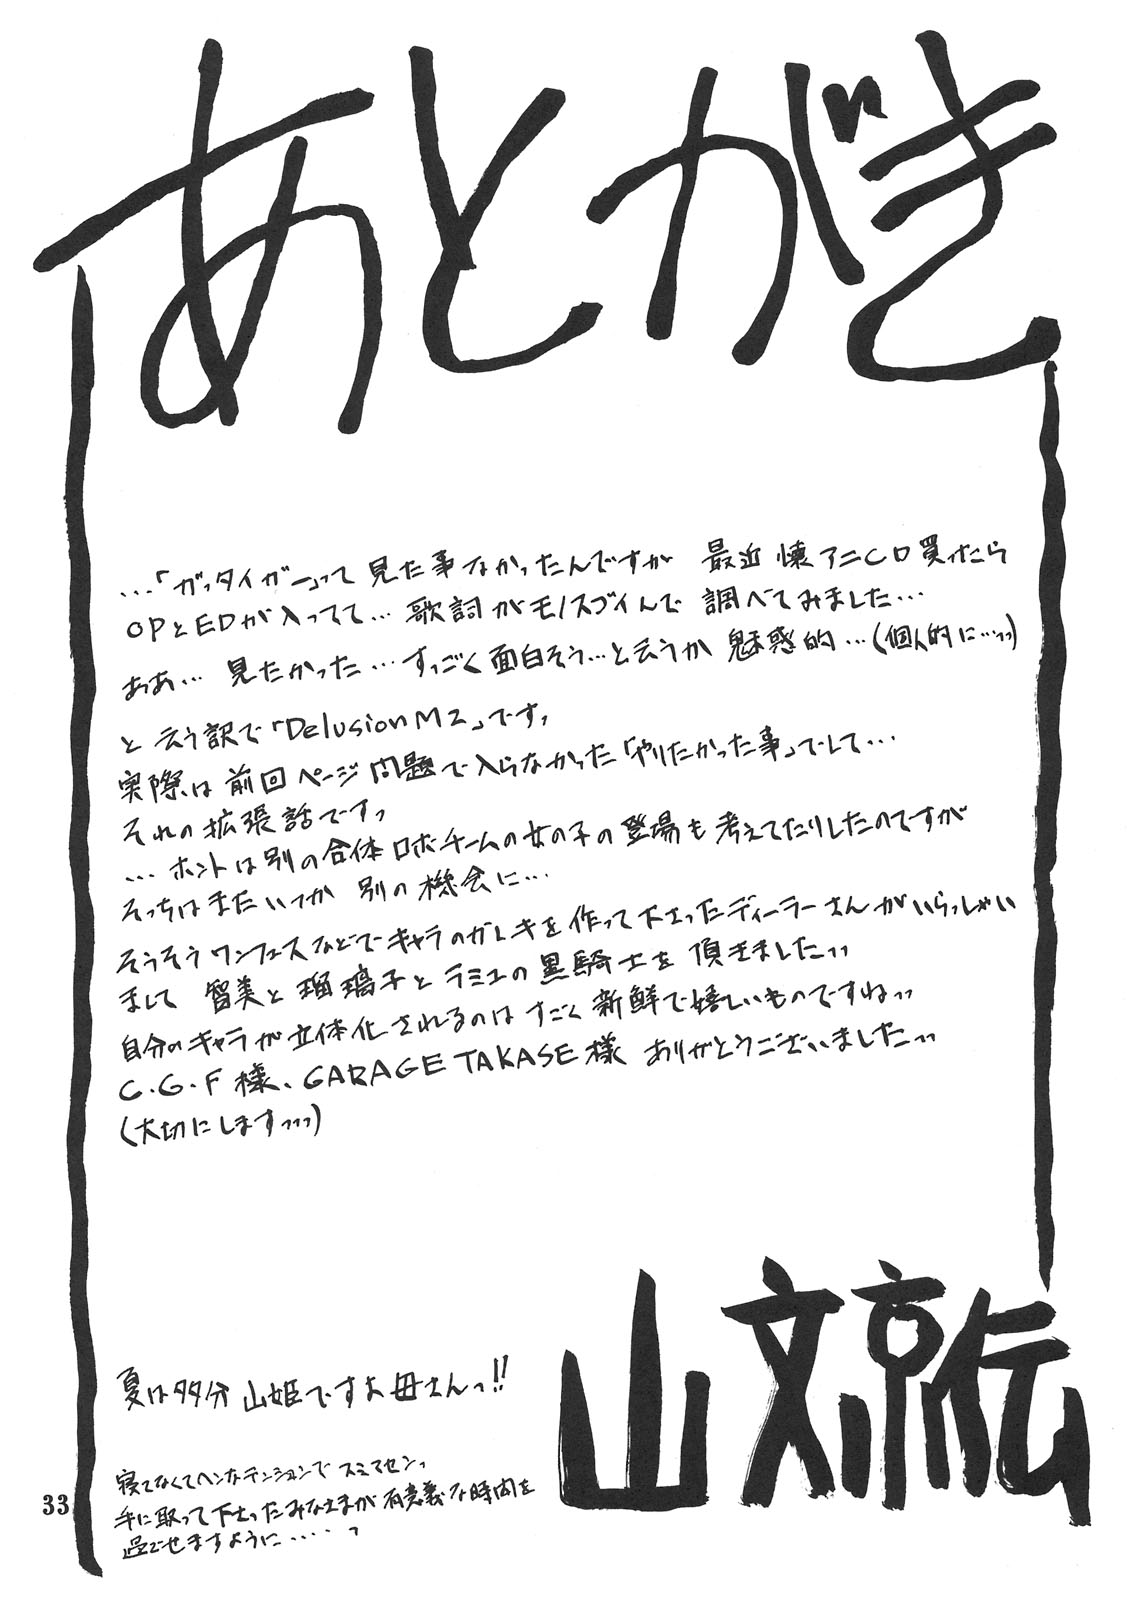 あとがき
…「ガッタイガー」って見た事なかったんですが 最近 懐アニCD買ったら
OPとEDが入ってて…歌詞がモノスゴイんで 調べてみました…
ああ… 見たかった…すっごく面白そう…と云うか 魅惑的…(個人的に…っっ)
と 云う訳で「Delusion M2」ですっ
実際は前回ページ問題で入らなかった「やりたかった事」でして…
それの拡張話ですっ
…ホントは別の合体ロボチームの女の子の登場も考えてたりしたのですが
そっちはまたいつか 別の機会に…
そうそうワンフェスなどでキャラのガレキを作って下さったディーラーさんがいらっしゃい
まして 智美と瑠璃子とラミュの黒騎士を頂きましたっっ
自分のキャラが立体化されるのはすごく新鮮で嬉しいものですねっっ
C.G.F様、GARAGE TAKASE様 ありがとうございましたっっ
(大切にしますっっっ)
夏は多分 山姫ですお母さんっ!!
寝てなくてヘンなテンションで スミマセンっ
手に取って下さったみなさまが有意義な時間を
過ごせますように‥‥っ
山文京伝
33